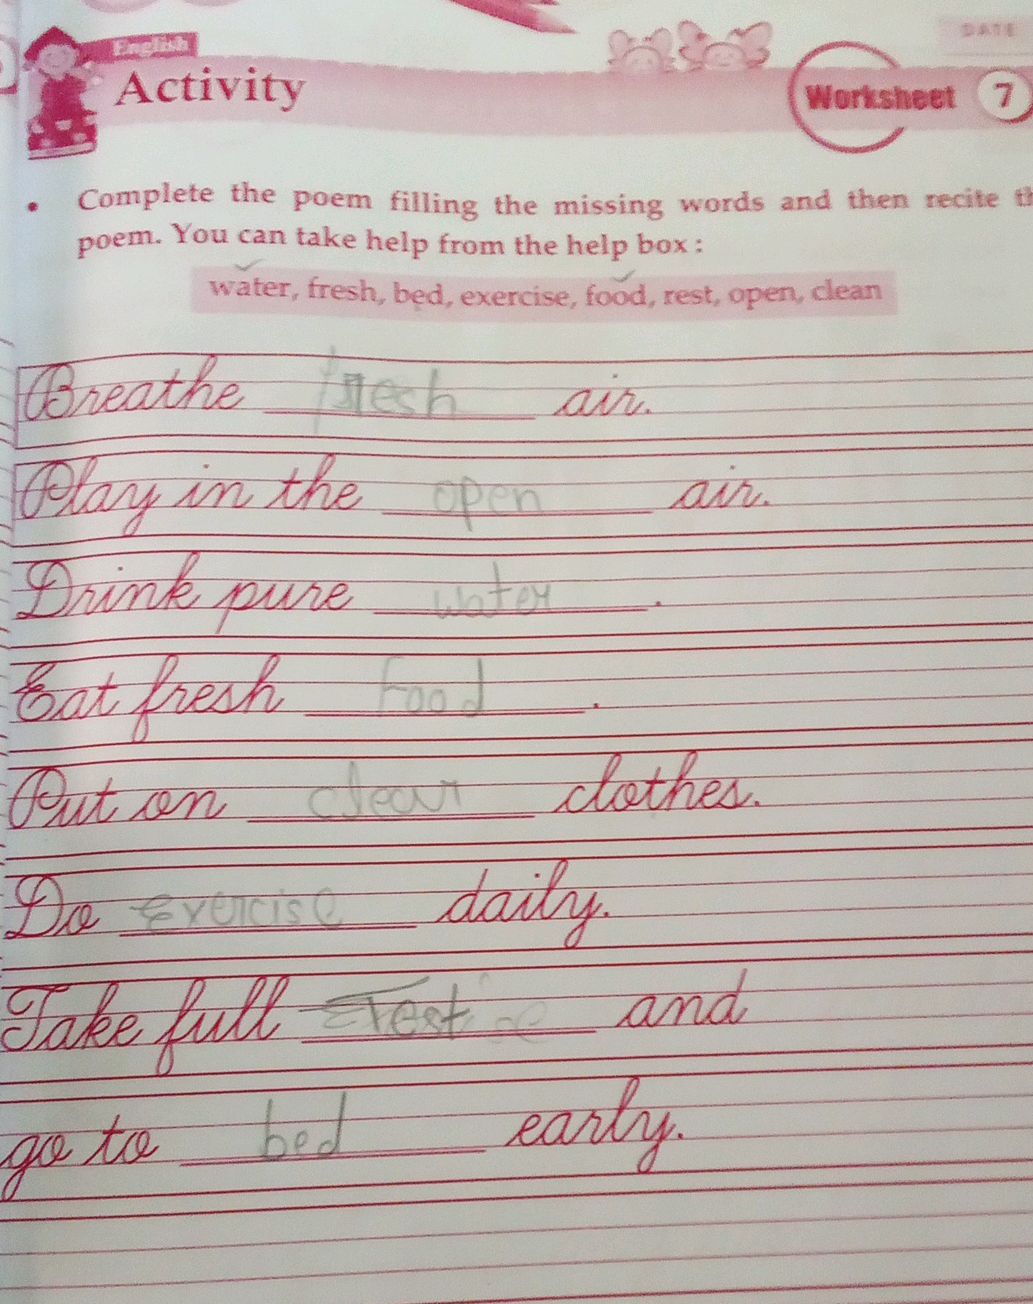 English
DATE
Activity
Worksheet 7
• Complete the poem filling the missing words and then recite
poem. You can take help from the help box :
water, fresh, bed, exercise, food, rest, open, clean
Breathe fresh air.
Play in the open air.
Drink pure water.
Eat fresh Food.
Put on clean clothes.
Do exercise daily.
Take full rest and
go to bed early.